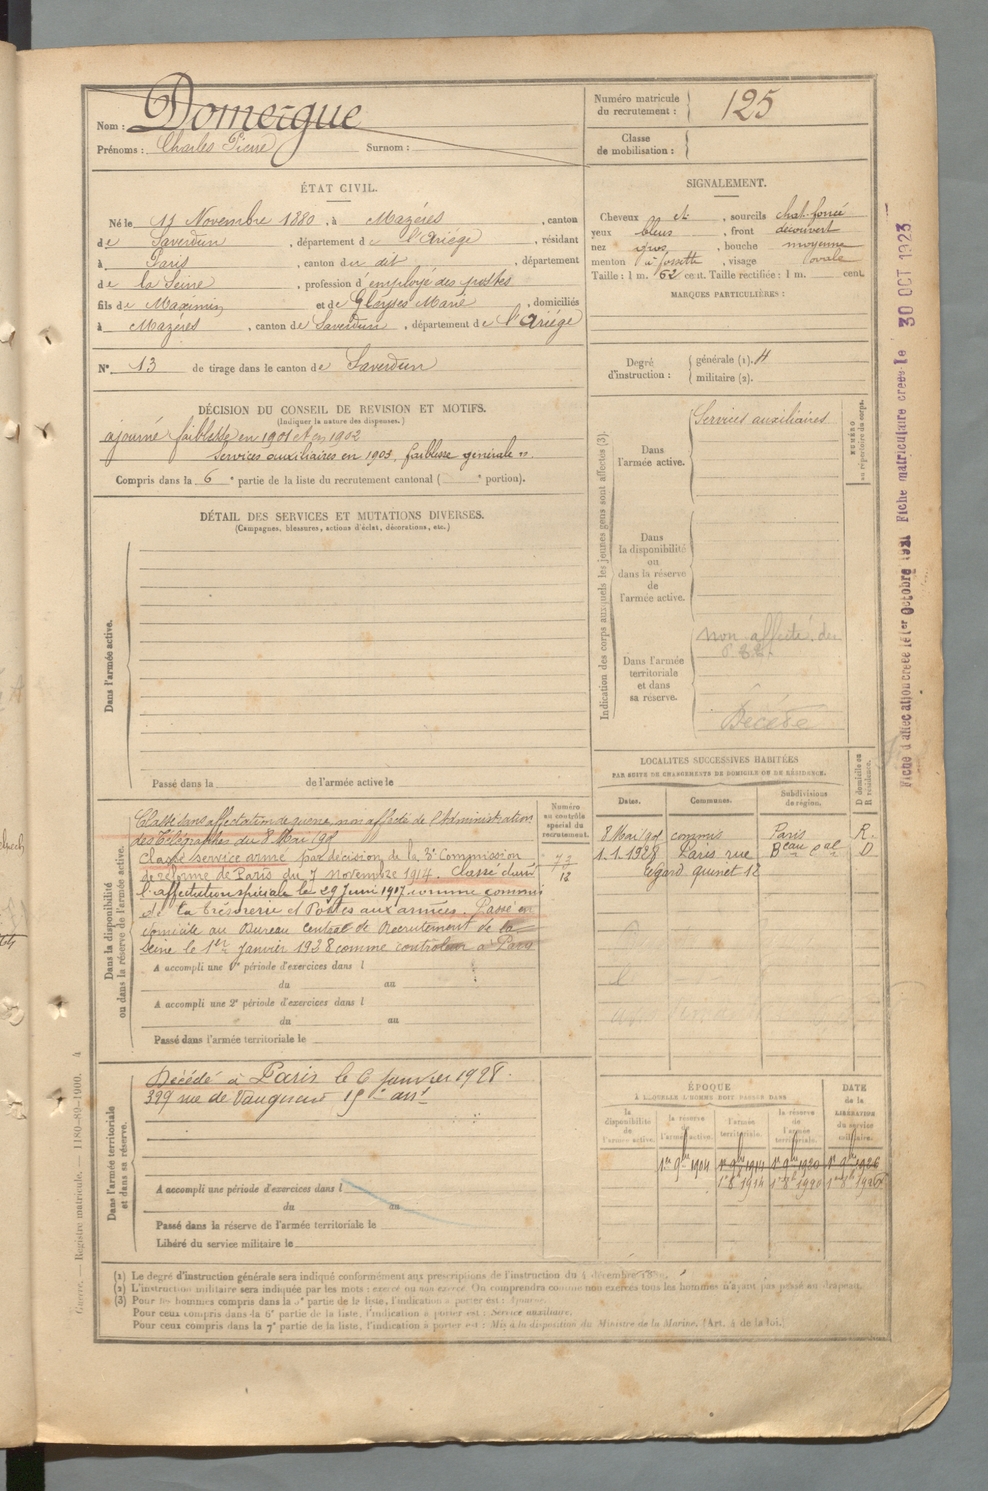 Nom : Domergue
Prénoms : Charles Pierre Surnom :
Numéro matricule du recrutement : 125
Classe de mobilisation :
ÉTAT CIVIL.
Né le 13 Novembre 1880, à Mazères, canton
de Saverdun, département de l'Ariége, résidant
à Paris, canton du dit, département
de la Seine, profession d'employé des postes
fils de Maximin et de Gleyses Marie, domiciliés
à Mazères, canton de Saverdun, département de l'Ariége
N° 13 de tirage dans le canton de Saverdun
SIGNALEMENT.
Cheveux et, sourcils chat. foncé
yeux bleus, front découvert
nez gros, bouche moyenne
menton à fossette, visage ovale
Taille : 1 m. 62 cent. Taille rectifiée : 1 m. cent.
MARQUES PARTICULIÈRES :
Degré d'instruction : générale (1). 4
militaire (2).
DÉCISION DU CONSEIL DE REVISION ET MOTIFS.
(Indiquer la nature des dispenses.)
ajourné faiblesse en 1901 et en 1902
Services auxiliaires en 1903, faiblesse générale
Compris dans la 6e partie de la liste du recrutement cantonal ( e portion).
DÉTAIL DES SERVICES ET MUTATIONS DIVERSES.
(Campagnes, blessures, actions d'éclat, décorations, etc.)
Dans l'armée active.
Passé dans la de l'armée active le
Indication des corps auxquels les jeunes gens sont affectés (3).
NUMÉRO au répertoire du corps.
Dans l'armée active.
Services auxiliaires
Dans la disponibilité ou dans la réserve de l'armée active.
Dans l'armée territoriale et dans sa réserve.
non affecté des
Décédé
LOCALITÉS SUCCESSIVES HABITÉES
PAR SUITE DE CHANGEMENTS DE DOMICILE OU DE RÉSIDENCE.
Dates. Communes. Subdivisions de région. D domicile ou R résidence.
8 Mai 1901 commis Paris R.
1.1.1928 Paris rue Beau Cal D
Edgard quinet 12
Dans la disponibilité ou dans la réserve de l'armée active.
Numéro au contrôle spécial du recrutement.
73
12
Classé sans affectation de guerre, non affecté de l'Administration
des Télégraphes du 8 Mai 1901
Classé service armé par décision de la 3e Commission
de réforme de Paris du 7 novembre 1914. Classé dans
l'affectation spéciale le 29 Juin 1917 comme commis
de la trésorerie et Postes aux armées. Passé en
domicile au Bureau Central de Recrutement de la
Seine le 1er Janvier 1928 comme controleur à Paris
A accompli une 1e période d'exercices dans l
du au
A accompli une 2e période d'exercices dans l
du au
Passé dans l'armée territoriale le
Dans l'armée territoriale et dans sa réserve.
Décédé à Paris le 6 janvier 1928.
399 rue de Vaugirard 15e arrt
A accompli une période d'exercices dans l
du au
Passé dans la réserve de l'armée territoriale le
Libéré du service militaire le
ÉPOQUE
À LAQUELLE L'HOMME DOIT PASSER DANS
DATE de la LIBÉRATION du service militaire.
la disponibilité de l'armée active. la réserve de l'armée active. l'armée territoriale. la réserve de l'armée territoriale.
1er 9bre 1904 1er 9bre 1914 1er 9bre 1920 1er 9bre 1926
1er 8bre 1914 1er 8bre 1920 1er 8bre 1926
(1) Le degré d'instruction générale sera indiqué conformément aux prescriptions de l'instruction du 4 décembre
(2) L'instruction militaire sera indiquée par les mots : exercé ou non exercé. On comprendra comme non exercés tous les hommes n'ayant pas passé au drapeau.
(3) Pour les hommes compris dans la 5e partie de la liste, l'indication à porter est : Ajourné.
Pour ceux compris dans la 6e partie de la liste, l'indication à porter est : Service auxiliaire.
Pour ceux compris dans la 7e partie de la liste, l'indication à porter est : Mis à la disposition du Ministre de la Marine. (Art. 4 de la loi.)
Guerre. — Registre matricule. — 1180-89-1900. 4
Fiche d'affectation créée le 1er Octobre 1921 Fiche matriculaire créée le 30 OCT 1923